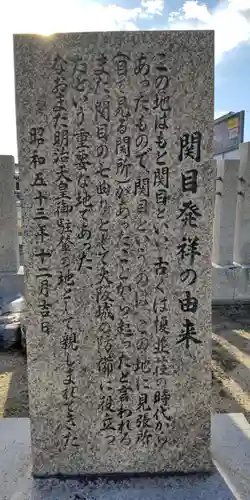 関目発祥の由来
この地はもと関目といい、古くは榎並荘の時代から
あったもので、関目というのは、この地に見張所
(目で見る関所)があったことから起ったと言われる
また関目の七曲りとて大阪城の防備に役立っ
たという重要な地であった
なおまた明治天皇御駐輦の地として親しまれてきた
昭和五十三年十二月吉日